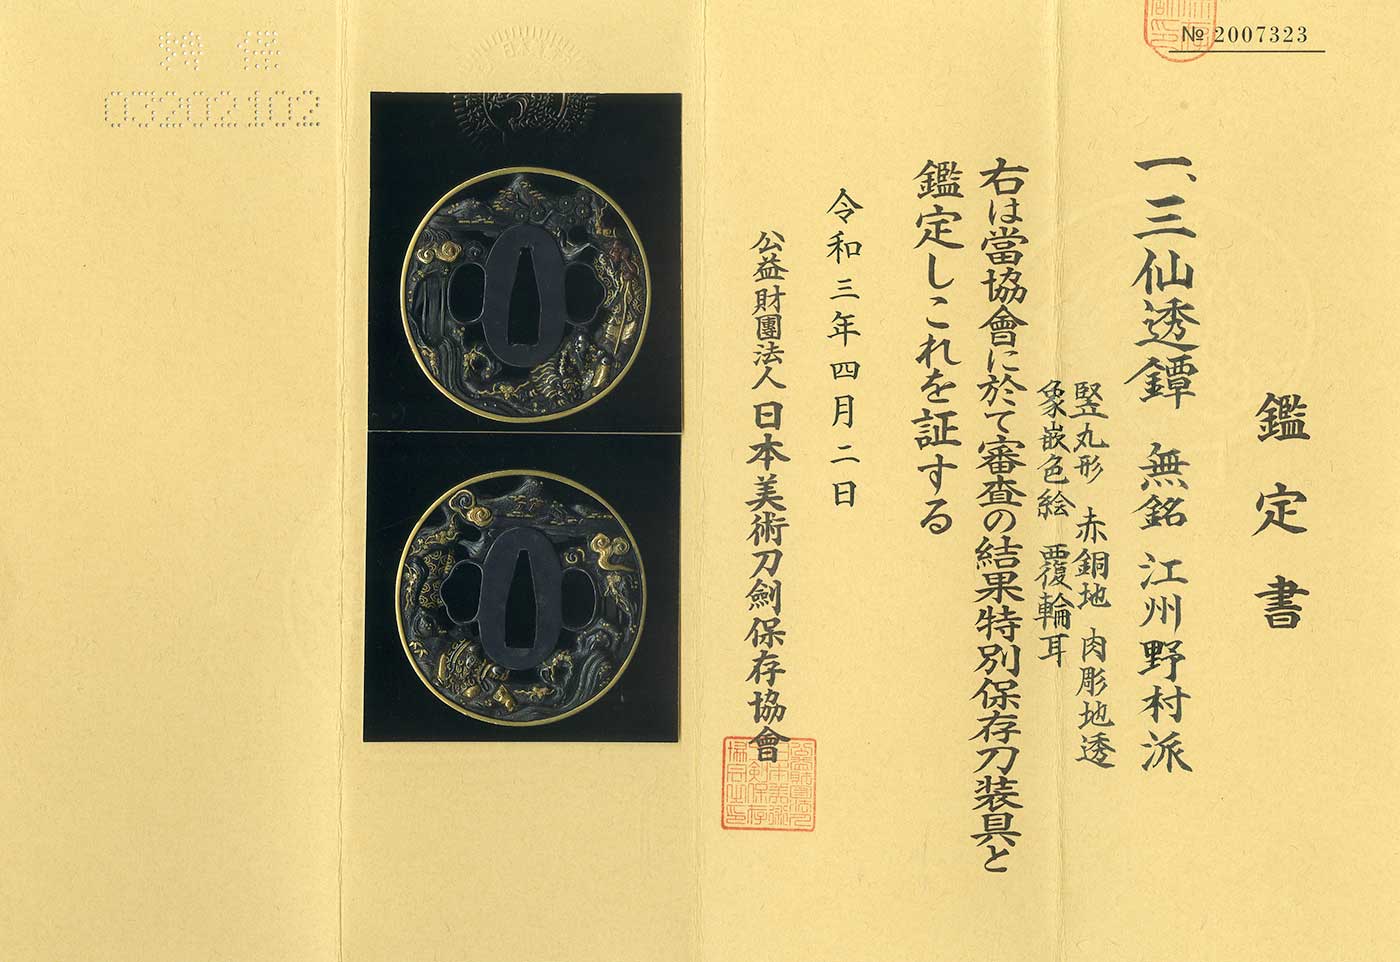 № 2007323
鑑定書
一、三仙透鐔 無銘 江州野村派
竪丸形 赤銅地 肉彫地透
象嵌色絵 覆輪耳
右は當協會に於て審査の結果特別保存刀装具と
鑑定しこれを証する
令和三年四月二日
公益財團法人 日本美術刀劍保存協會
03202102